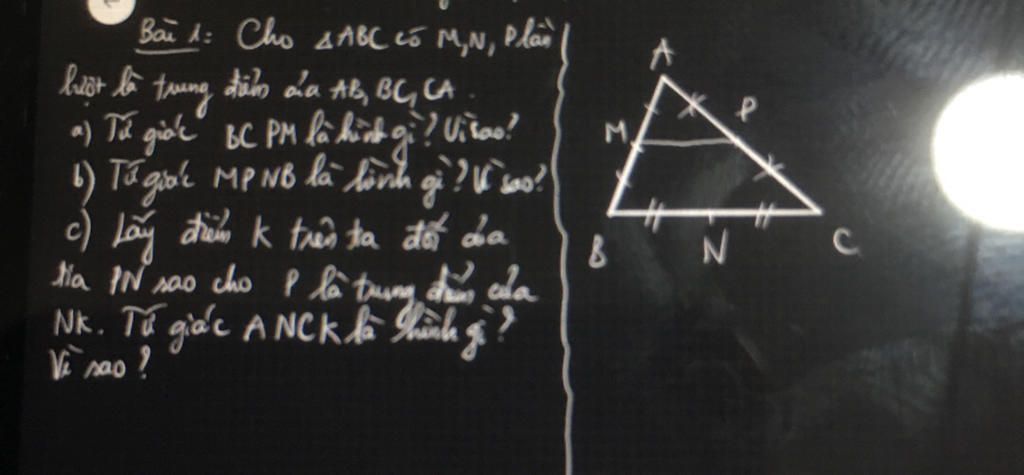 Bài 1: Cho △ABC có M, N, P lần
lượt là trung điểm của AB, BC, CA.
a) Tứ giác BCPM là hình gì? Vì sao?
b) Tứ giác MPNB là hình gì? Vì sao?
c) Lấy điểm K trên tia đối của
tia PN sao cho P là trung điểm của
NK. Tứ giác ANCK là hình gì?
Vì sao?
A
M
P
B
N
C